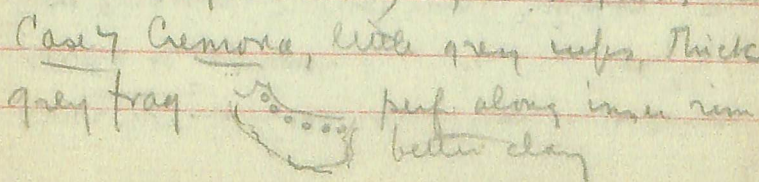 Case 7 Cremona, little grey cups, Thick
grey frag. perf. along inner rim
better clay